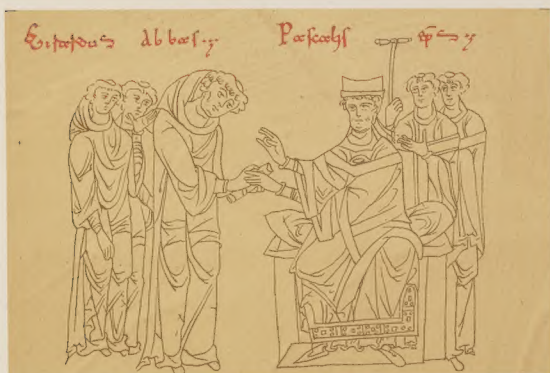 Girardus Abbas Pascalis ep̄s